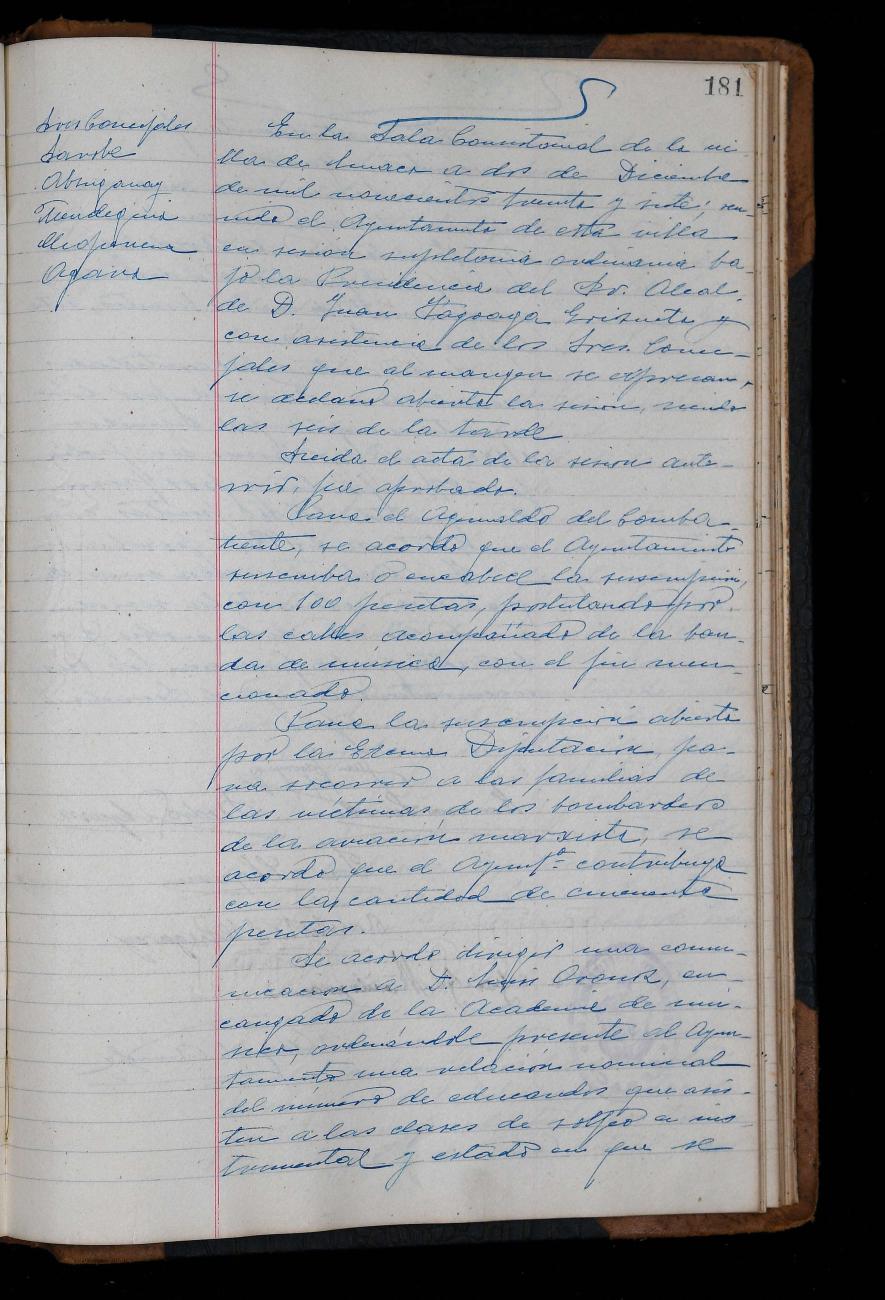 181
Sres Concejales
Sarobe
Abrigaray
En la Sala Consistorial de la vi-
lla de a dos de Diciembre
de mil novecientos treinta y siete; reu-
nido el Ayuntamiento de esta villa
en sesión supletoria ordinaria ba-
jo la Presidencia del Sr. Alcal-
de D. Juan Fagoaga y
con asistencia de los Sres. Conce-
jales que al margen se expresan,
se declaró abierta la sesion, siendo
las seis de la tarde
Leida el acta de la sesion ante-
rior, fue aprobada.
Para el Aguinaldo del Comba-
tiente, se acordó que el Ayuntamiento
suscriba ó encabece la suscripción,
con 100 pesetas, postulando por
las calles acompañado de la ban-
da de música, con el fin men-
cionado.
Para la suscripción abierta
por la Excma Diputación, pa-
ra socorrer a las familias de
las víctimas de los bombardeos
de la aviación marxista, se
acordó que el Ayuntº contribuya
con la cantidad de cincuenta
pesetas.
Se acordó dirigir una comu-
nicacion a D. Luis Oronoz, en-
cargado de la Academia de mú-
sica, ordenándole presente al Ayun-
tamiento una relación nominal
del número de educandos que asis-
ten a las clases de solfeo e ins-
trumental y estado en que se